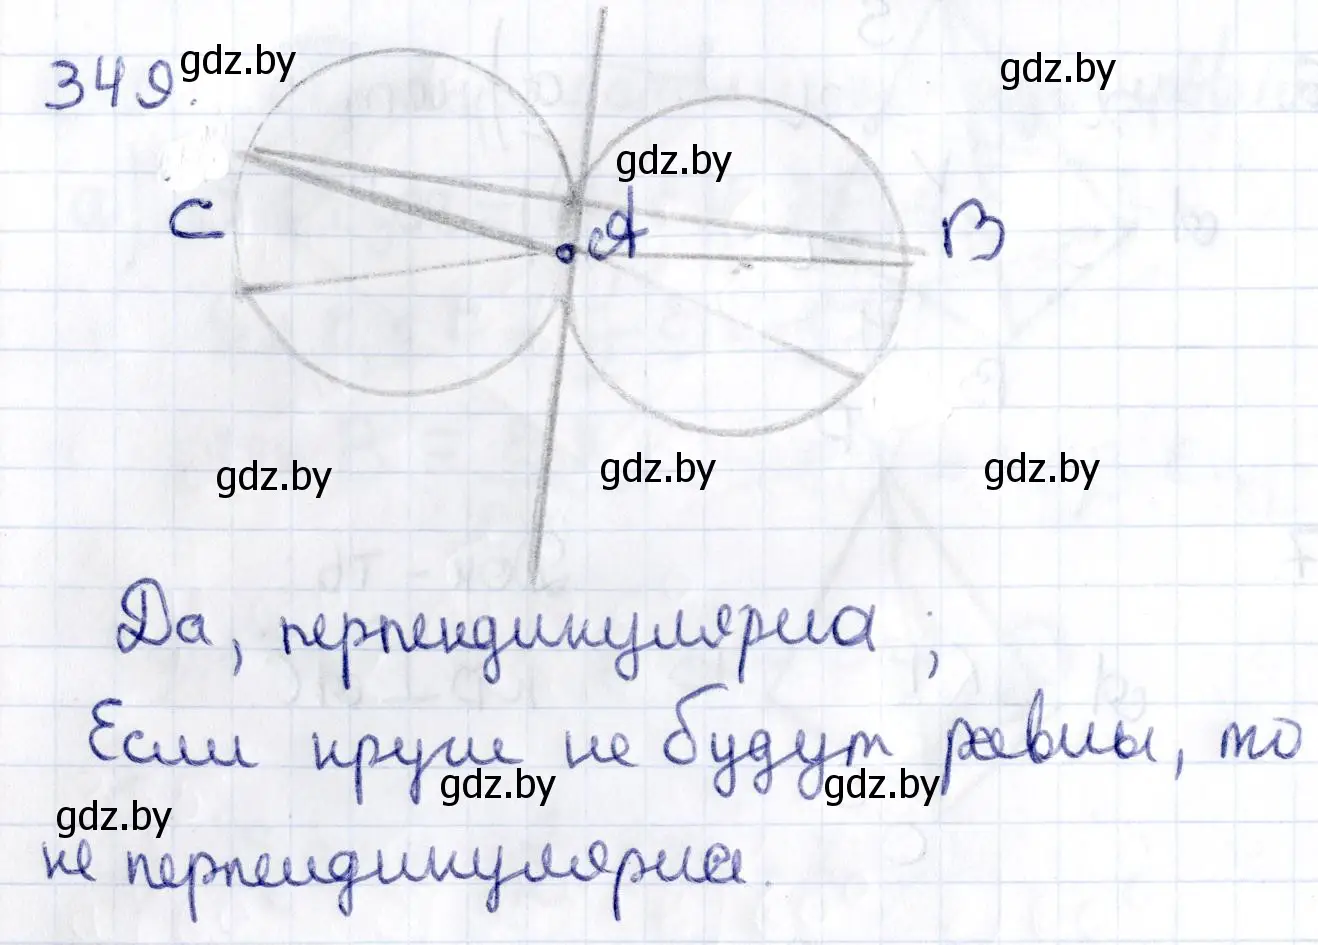 349.
gdz.by
gdz.by
gdz.by
C
A
B
gdz.by
gdz.by
gdz.by
Да, перпендикулярна;
Если круги не будут равны, то
gdz.by
gdz.by
gdz.by
не перпендикулярна.